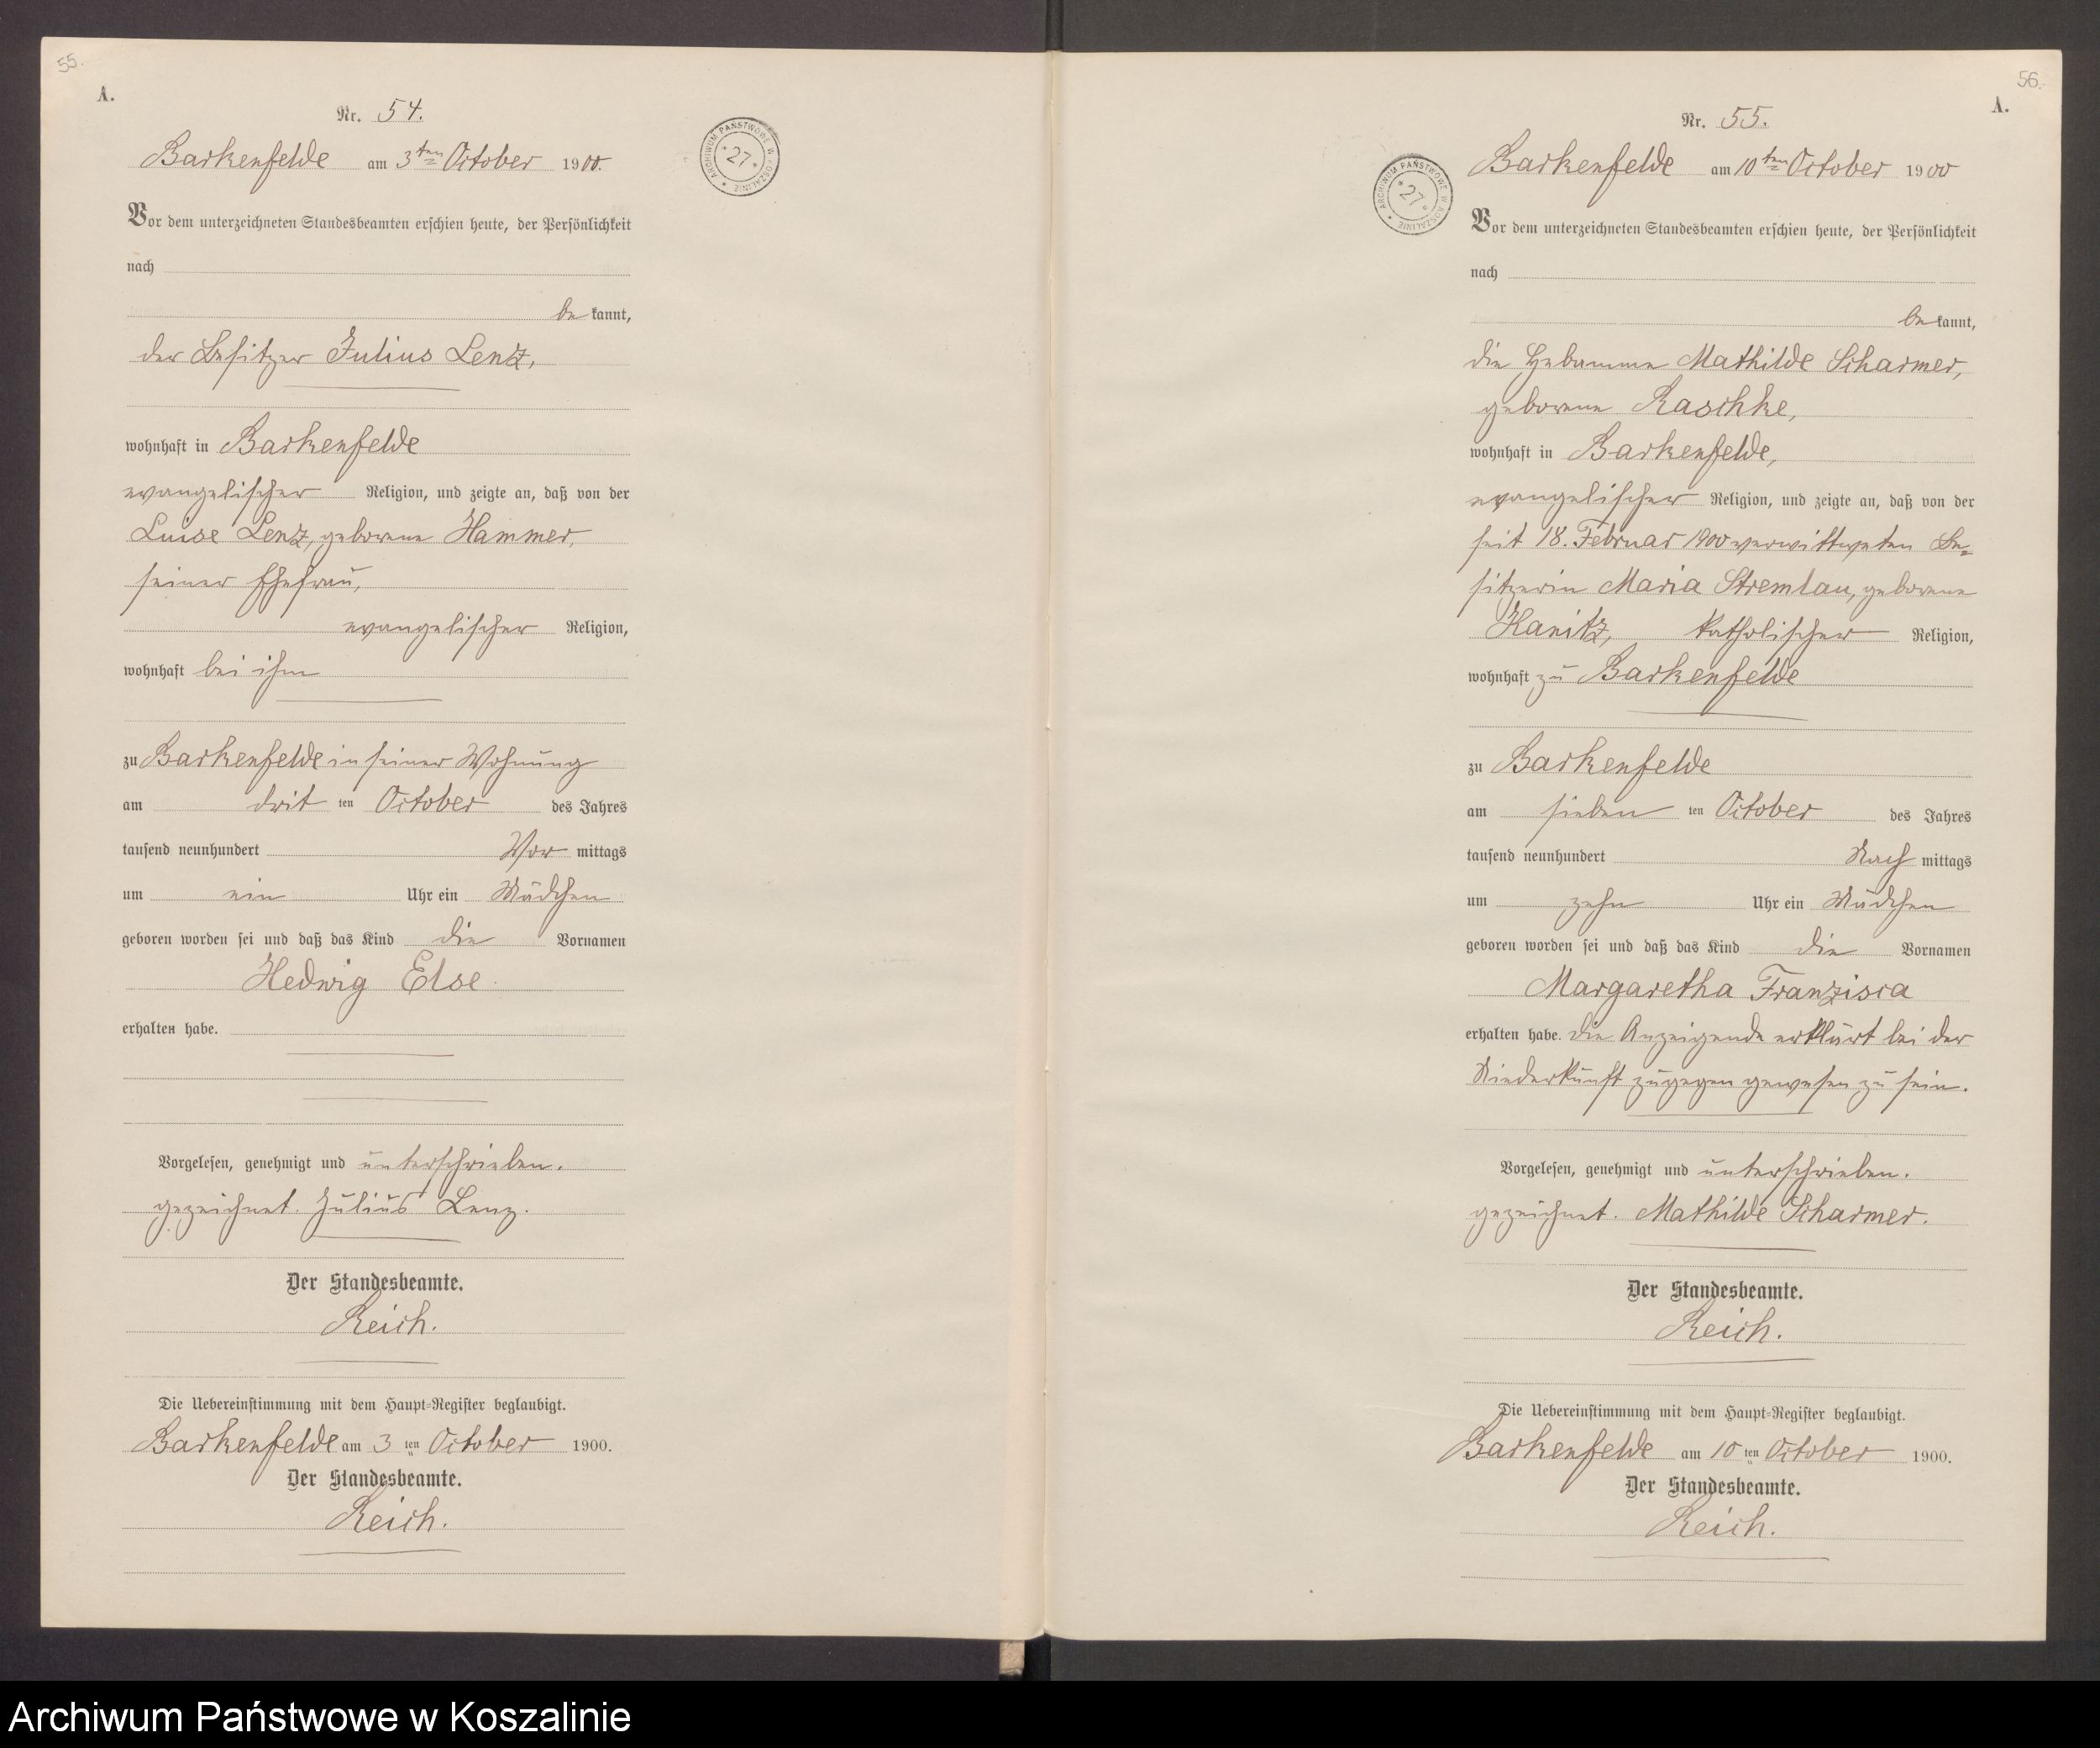 55.
A.
Nr. 54.
Barkenfelde am 3ten October 1900.
Vor dem unterzeichneten Standesbeamten erschien heute, der Persönlichkeit
nach
be kannt,
der Besitzer Julius Lenz,
wohnhaft in Barkenfelde
evangelischer Religion, und zeigte an, daß von der
Luise Lenz, geborene Hammer,
seiner Ehefrau,
evangelischer Religion,
wohnhaft bei ihm
zu Barkenfelde in seiner Wohnung
am drit ten October des Jahres
tausend neunhundert Vor mittags
um ein Uhr ein Mädchen
geboren worden sei und daß das Kind die Vornamen
Hedwig Else
erhalten habe.
Vorgelesen, genehmigt und unterschrieben.
gezeichnet. Julius Lenz.
Der Standesbeamte.
Reich.
Die Uebereinstimmung mit dem Haupt-Register beglaubigt.
Barkenfelde am 3 ten October 1900.
Der Standesbeamte.
Reich.
ARCHIWUM PAŃSTWOWE W KOSZALINIE
* 27 *
56.
A.
Nr. 55.
Barkenfelde am 10ten October 1900
ARCHIWUM PAŃSTWOWE W KOSZALINIE
* 27 *
Vor dem unterzeichneten Standesbeamten erschien heute, der Persönlichkeit
nach
be kannt,
die Hebamme Mathilde Scharmer,
geborene Raschke,
wohnhaft in Barkenfelde,
evangelischer Religion, und zeigte an, daß von der
seit 18. Februar 1900 verwittweten Be-
sitzerin Maria Stremlau, geborene
Hanitz, katholischer Religion,
wohnhaft zu Barkenfelde
zu Barkenfelde
am sieben ten October des Jahres
tausend neunhundert Nach mittags
um zehn Uhr ein Mädchen
geboren worden sei und daß das Kind die Vornamen
Margaretha Franzisca
erhalten habe. Die Anzeigende erklärt bei der
Niederkunft zugegen gewesen zu sein.
Vorgelesen, genehmigt und unterschrieben.
gezeichnet. Mathilde Scharmer.
Der Standesbeamte.
Reich.
Die Uebereinstimmung mit dem Haupt-Register beglaubigt.
Barkenfelde am 10 ten October 1900.
Der Standesbeamte.
Reich.
Archiwum Państwowe w Koszalinie